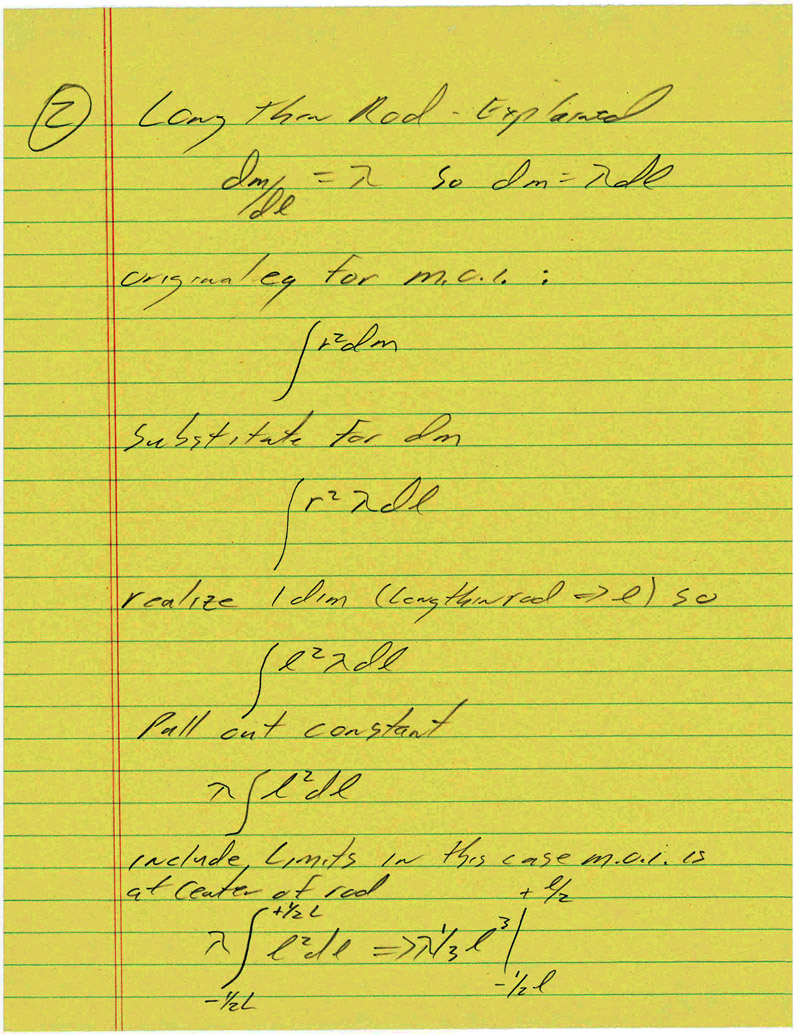 ② Long thin Rod - Explained
dm/dl = λ so dm = λdl
original eq for m.o.i. :
∫ r²dm
substitute for dm
∫ r² λdl
realize 1 dim (longthinrod => l) so
∫ l² λdl
Pull out constant
λ ∫ l² dl
include Limits in this case m.o.i. is
at center of rod
λ ∫_{-½L}^{+½L} l²dl => λ ⅓ l³ |_{-½l}^{+l/2}